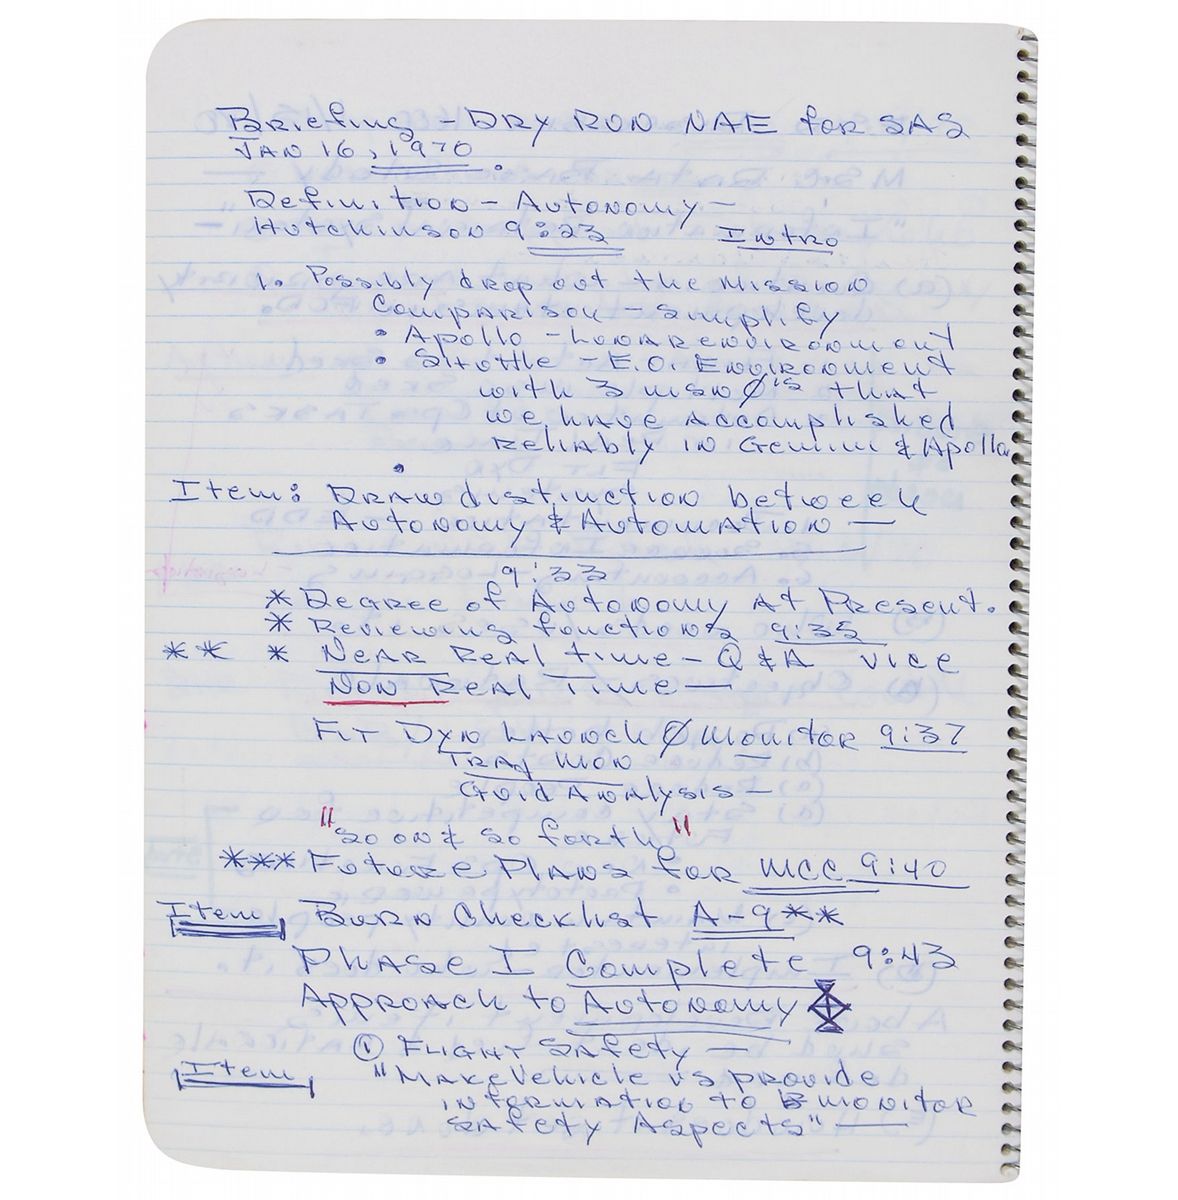 Briefing - DRY RUN NAE for SAS
JAN 16, 1970.
Definition - Autonomy -
Hutchinson 9:23 Intro
1. Possibly drop out the Mission
Comparison - simplify
• Apollo - Lunar environment
• Shuttle - E.O. Environment
with 3 msn Ø's that
we have accomplished
reliably in Gemini & Apollo
•
Item: Draw distinction between
Autonomy & Automation —
9:33
* Degree of Autonomy At Present.
* Reviewing functions 9:35
** * Near Real time - Q & A vice
Non Real Time —
FLT Dyn Launch Ø monitor 9:37
Traj mon —
Guid Analysis —
"so on & so forth"
*** Future Plans for MCC 9:40
Item Burn Checklist A-9 **
Phase I Complete 9:43
Approach to Autonomy
① Flight Safety —
Item "Make Vehicle vs provide
information to monitor
Safety Aspects" —